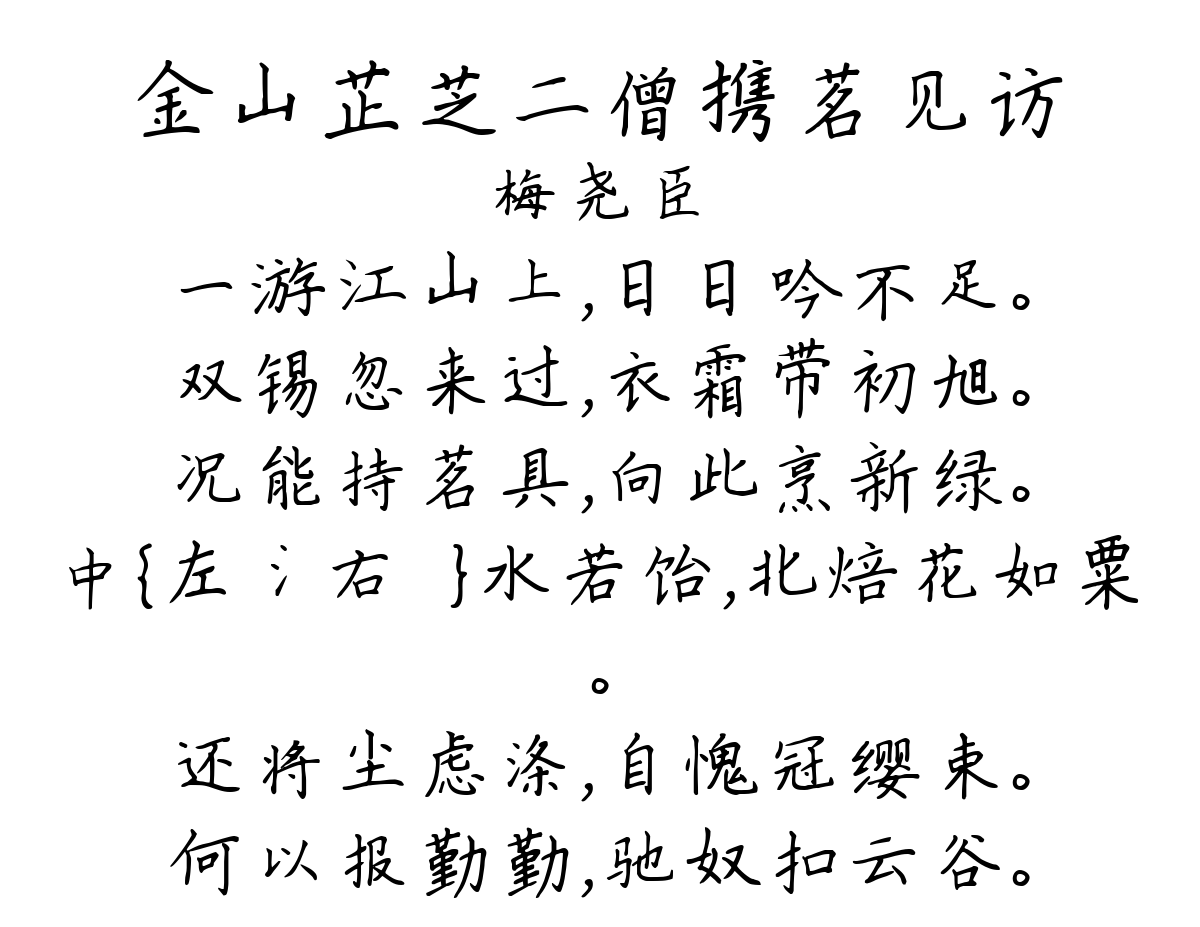 金山芷芝二僧携茗见访
梅尧臣
一游江山上,日日吟不足。
双锡忽来过,衣霜带初旭。
况能持茗具,向此烹新绿。
中{左氵右 }水若饴,北焙花如粟
。
还将尘虑涤,自愧冠缨束。
何以报勤勤,驰奴扣云谷。